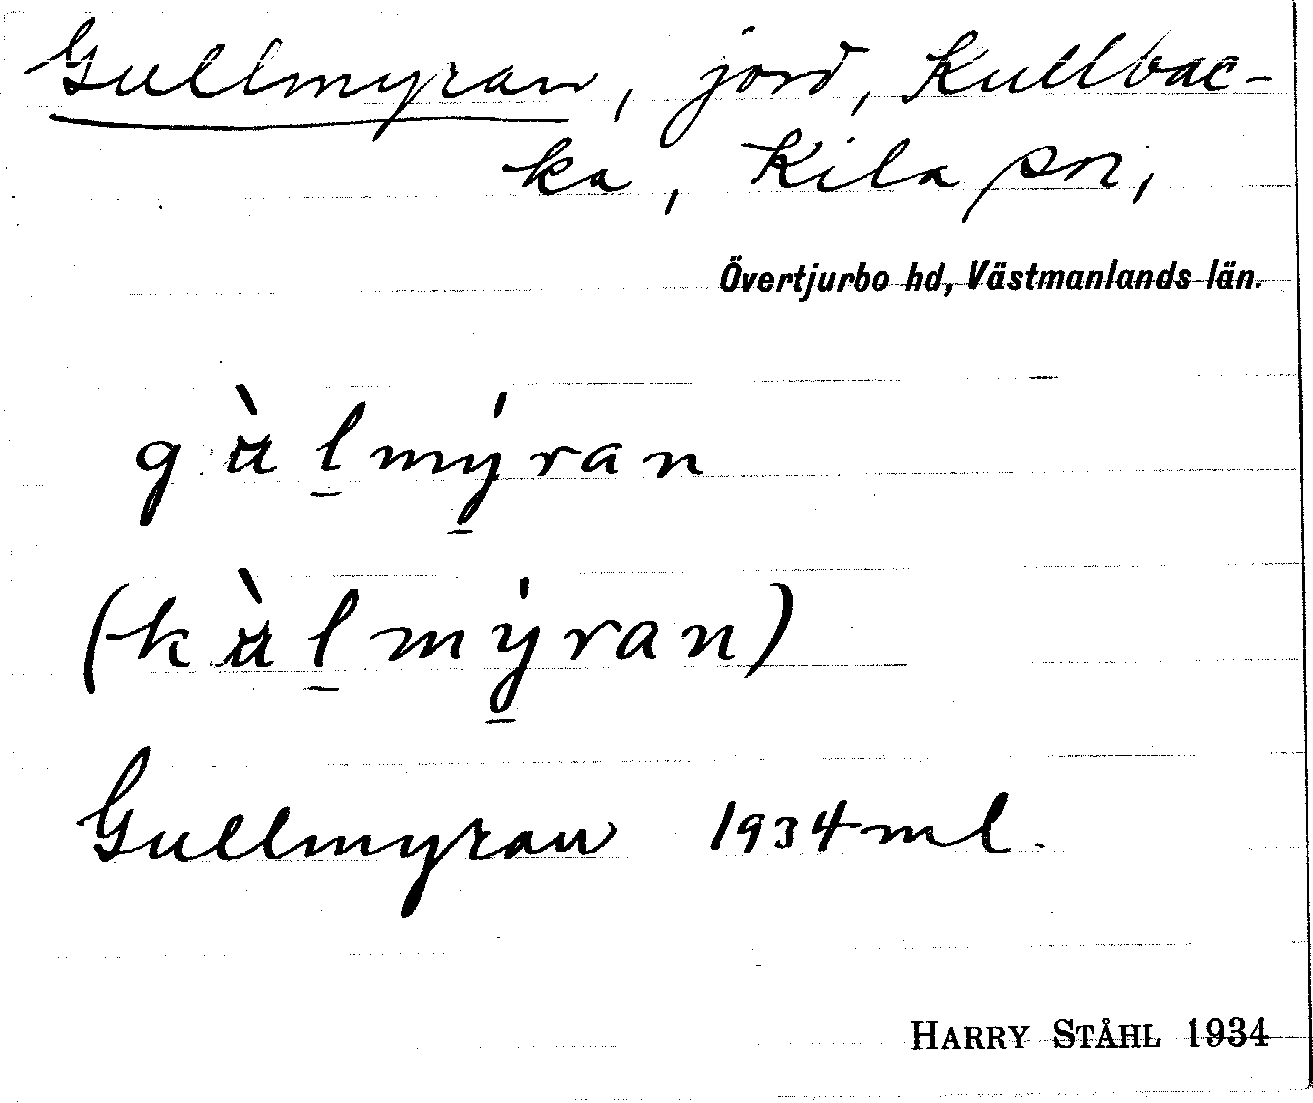 Gullmyran, jord, Kullbac-
ka, Kila sn,
Övertjurbo hd, Västmanlands län.
gù̈l̲mý̲ran
(kù̈l̲mý̲ran)
Gullmyran 1934 ml.
HARRY STÅHL 1934